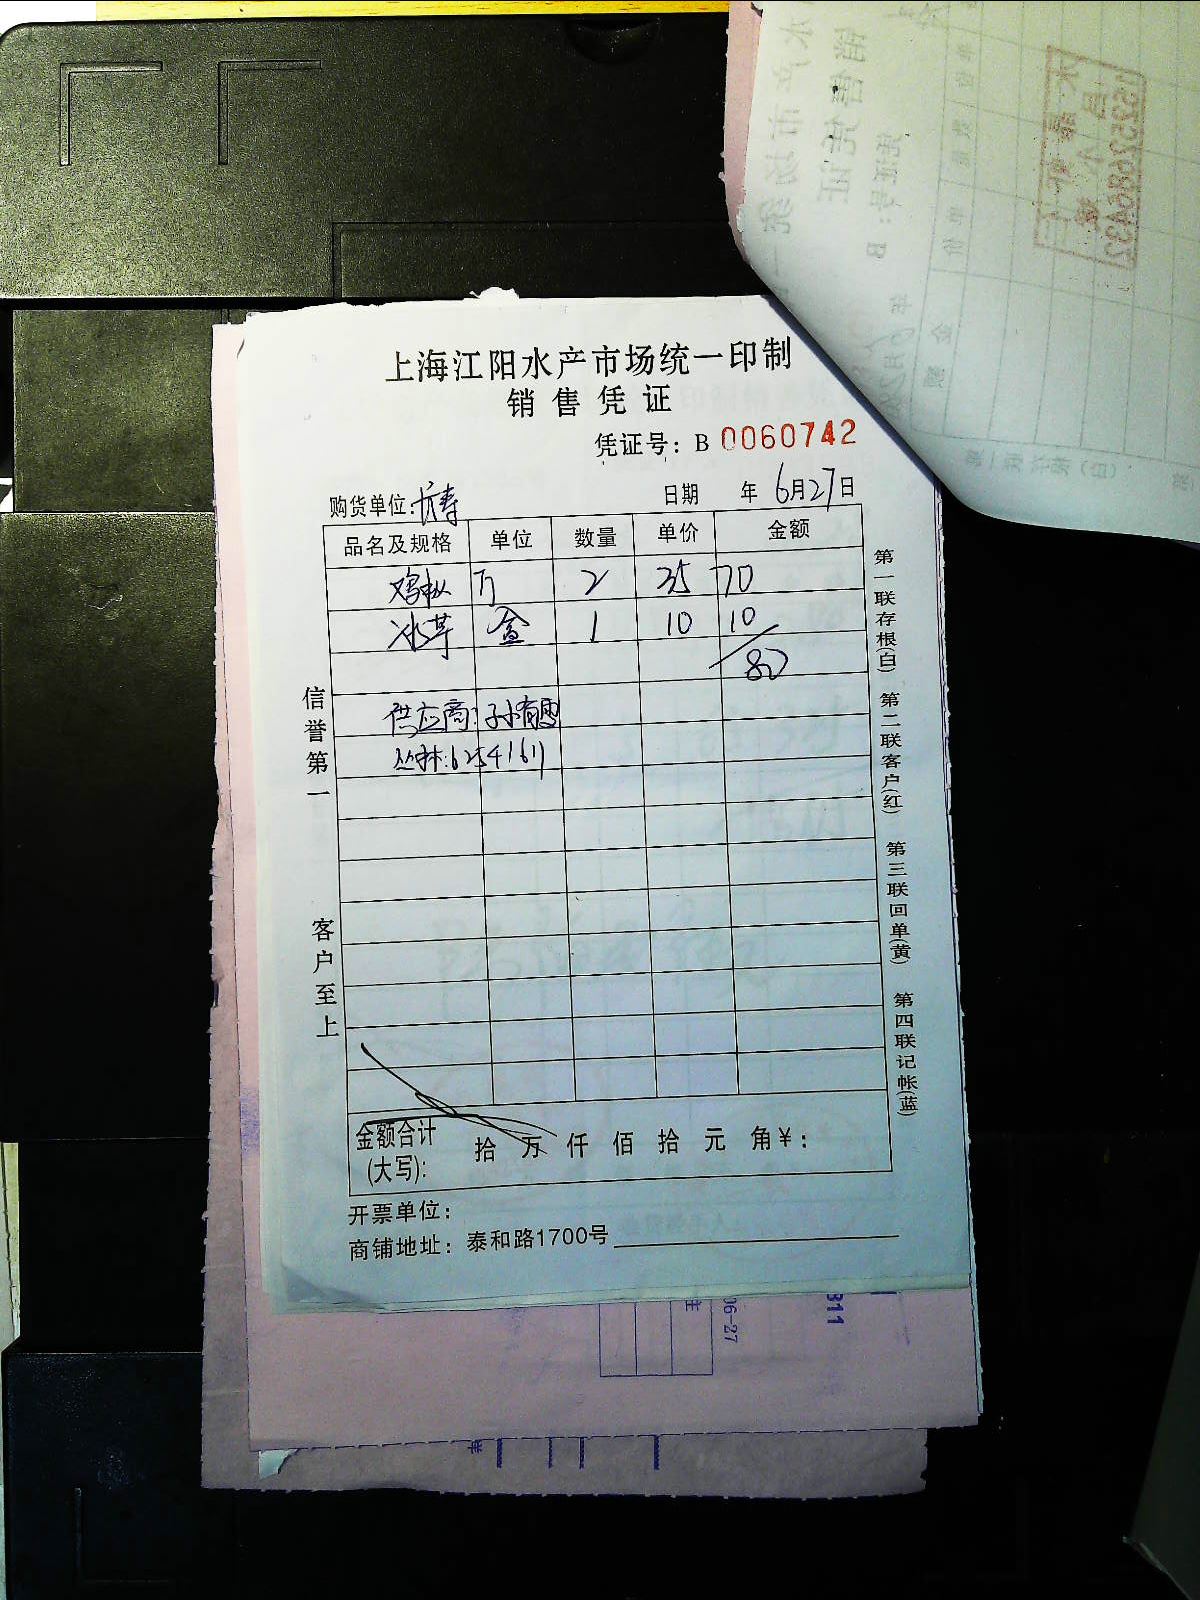 上海江阳水产市场统一印制
销售凭证
凭证号：B 0060742
购货单位：长寿 日期 年 6月27日
品名及规格 单位 数量 单价 金额
鸡枞 斤 2 35 70
冰草 盒 1 10 10
80
供应商：孙有雪
丛林：62541611
信誉第一
客户至上
第一联存根(白) 第二联客户(红) 第三联回单(黄) 第四联记帐(蓝)
金额合计(大写)： 拾 万 仟 佰 拾 元 角 ¥：
开票单位：
商铺地址：泰和路1700号
06-27
311